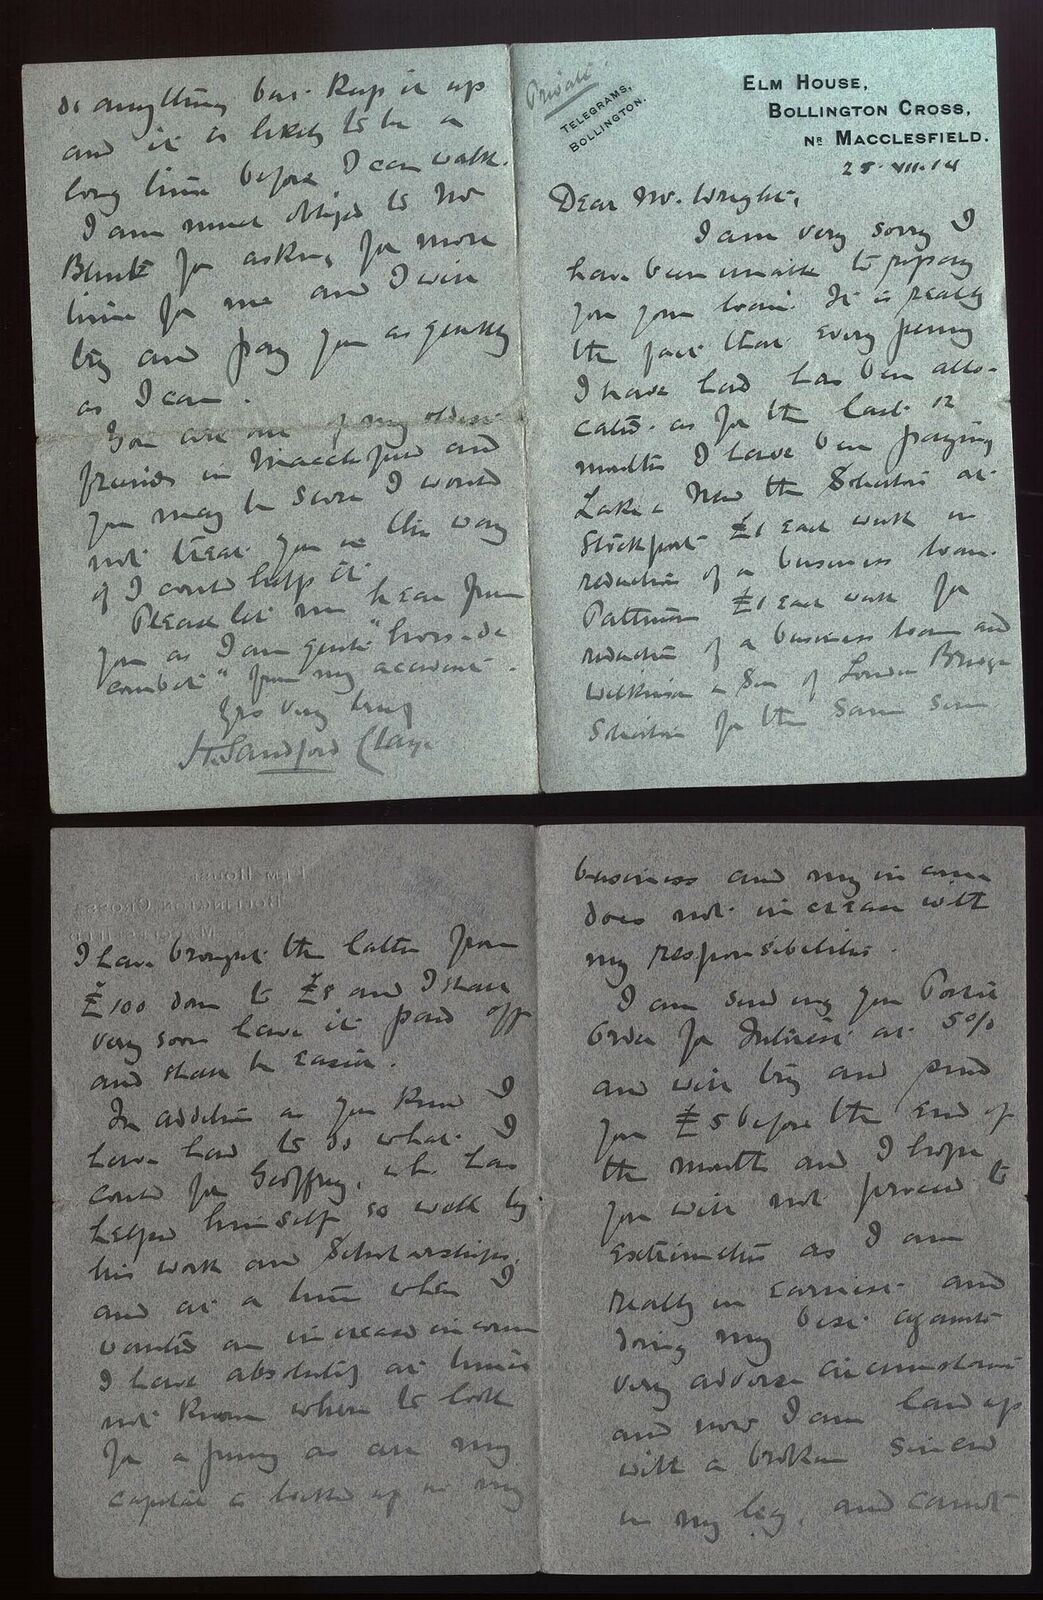 Private
TELEGRAMS,
BOLLINGTON.
ELM HOUSE,
BOLLINGTON CROSS,
NR MACCLESFIELD.
28. VII. 14
Dear Mr. Wright,
I am very sorry I
have been unable to repay
you your loan. It is really
the fact that every penny
I have had has been allo-
cated. as for the last 12
months I have been paying
Lake & New the Solicitors at
Stockport £1 each week in
reduction of a business loan.
Pattinson £1 each week for
reduction of a business loan and
Wilkinson & Son of London Bridge
Solicitors for the same
I have brought the latter from
£100 down to £8 and I shall
very soon have it paid off
and shall be easier.
In addition as you know I
have had to do what I
could for Geoffrey, who has
helped himself so well by
his work and Scholarships,
and at a time when I
wanted an increased income
I have absolutely at times
not known where to look
for a penny as all my
capital is locked up in my
business and my income
does not increase with
my responsibilities.
I am sending you Postal
Order for Interest at 5%
and will try and send
you £5 before the end of
the month and I hope
you will not proceed to
extremities as I am
really in earnest and
doing my best against
very adverse circumstances
and now I am laid up
with a broken sinew
in my leg, and cannot
do anything but keep it up
and it is likely to be a
long time before I can walk.
I am much obliged to Mr
for asking for more
time for me and I will
try and pay you as quickly
as I can.
You are one of my oldest
friends in Macclesfield and
you may be sure I would
not treat you in this way
if I could help it.
Please let me hear from
you as I am quite "hors de
combat" from my accident.
Yrs very truly
H. Sandford Claye